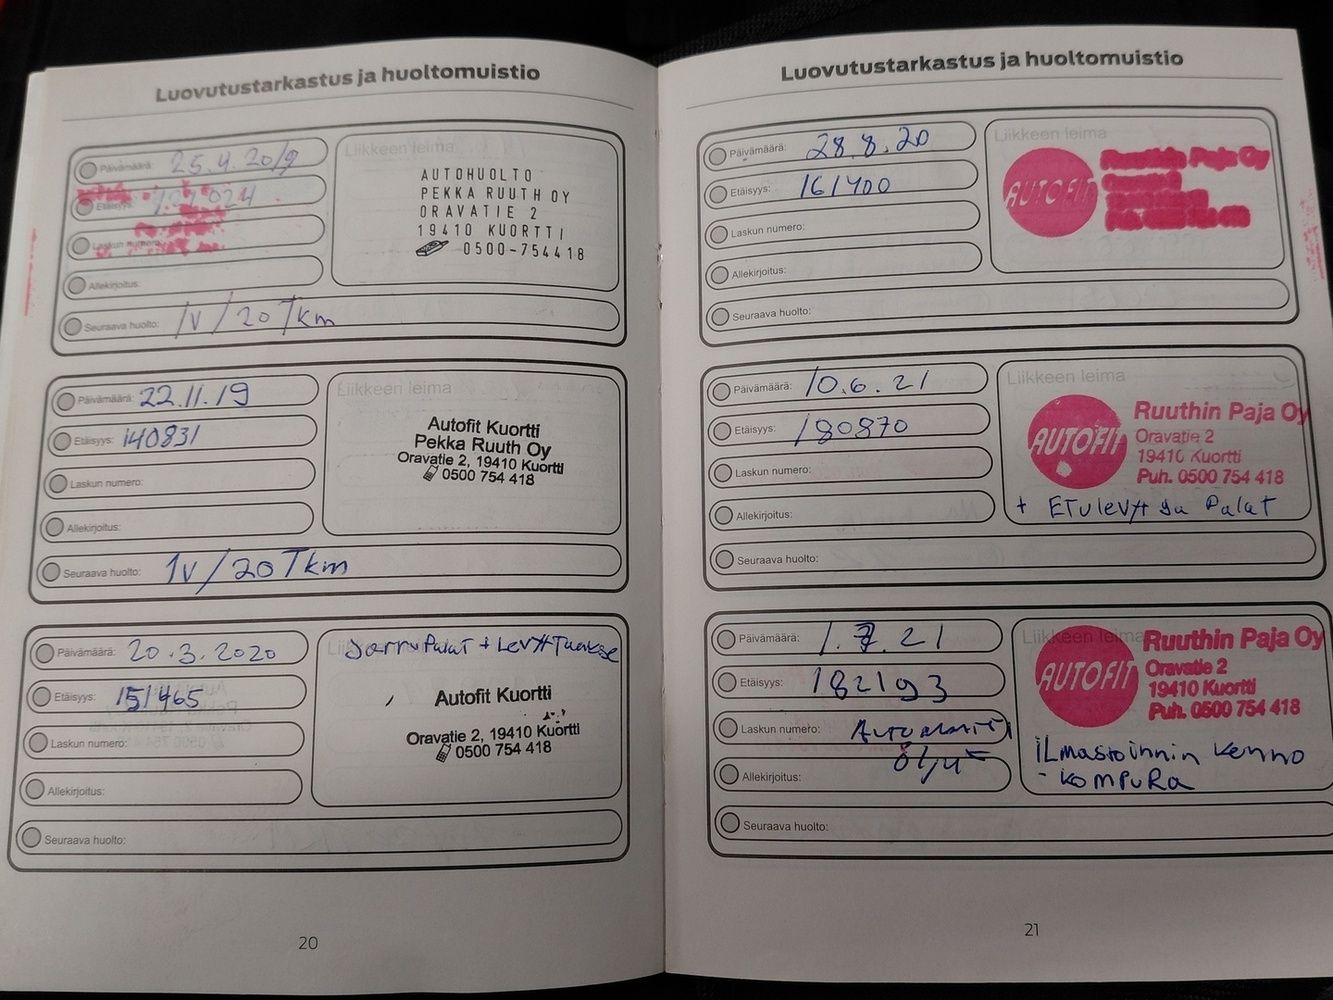 Luovutustarkastus ja huoltomuistio
Päivämäärä: 25.4.2019
Liikkeen leima
Etäisyys:
Laskun numero:
Allekirjoitus:
AUTOHUOLTO
PEKKA RUUTH OY
ORAVATIE 2
19410 KUORTTI
0500-754418
Seuraava huolto: 1V/20Tkm
Päivämäärä: 22.11.19
Liikkeen leima
Etäisyys: 140831
Laskun numero:
Allekirjoitus:
Autofit Kuortti
Pekka Ruuth Oy
Oravatie 2, 19410 Kuortti
0500 754 418
Seuraava huolto: 1V/20Tkm
Päivämäärä: 20.3.2020
JarruPalat + Levyt Taakse
Etäisyys: 151465
Laskun numero:
Allekirjoitus:
Autofit Kuortti
Oravatie 2, 19410 Kuortti
0500 754 418
Seuraava huolto:
20
Luovutustarkastus ja huoltomuistio
Päivämäärä: 28.8.20
Liikkeen leima
Etäisyys: 161400
Laskun numero:
Allekirjoitus:
AUTOFIT
Ruuthin Paja Oy
Seuraava huolto:
Päivämäärä: 10.6.21
Liikkeen leima
Etäisyys: 180870
Laskun numero:
Allekirjoitus:
AUTOFIT
Ruuthin Paja Oy
Oravatie 2
19410 Kuortti
Puh. 0500 754 418
+ ETulevyt Ja Palat
Seuraava huolto:
Päivämäärä: 1.7.21
Liikkeen leima
Etäisyys: 182193
Laskun numero: Automaatti
öljyt
Allekirjoitus:
AUTOFIT
Ruuthin Paja Oy
Oravatie 2
19410 Kuortti
Puh. 0500 754 418
iLmastoinnin Kenno
- KOMPURA
Seuraava huolto:
21